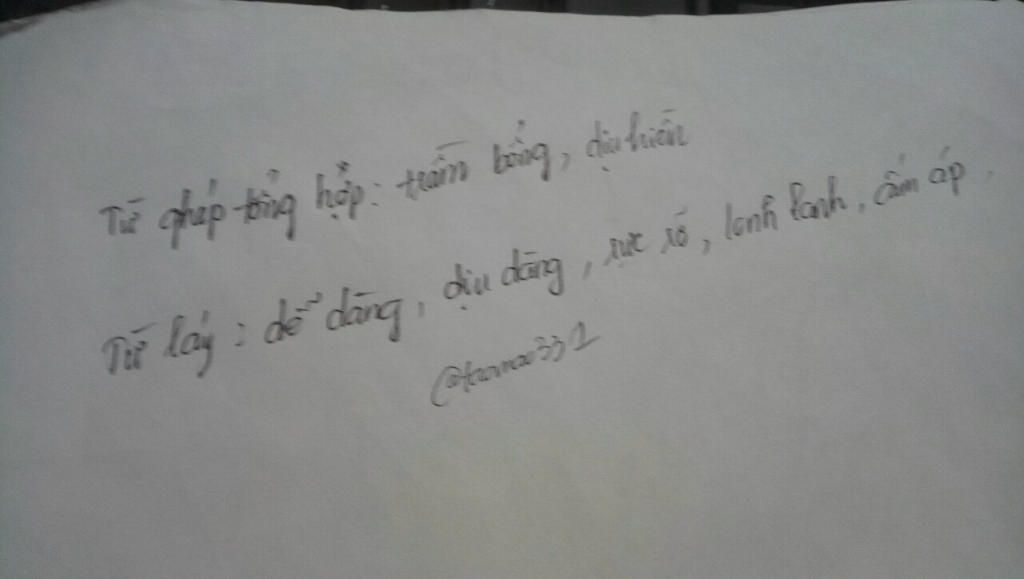 Từ ghép tổng hợp: trầm bổng, dịu hiền
Từ láy: dễ dàng, dịu dàng, rực rỡ, lanh lanh, ấm áp.
@taomao331